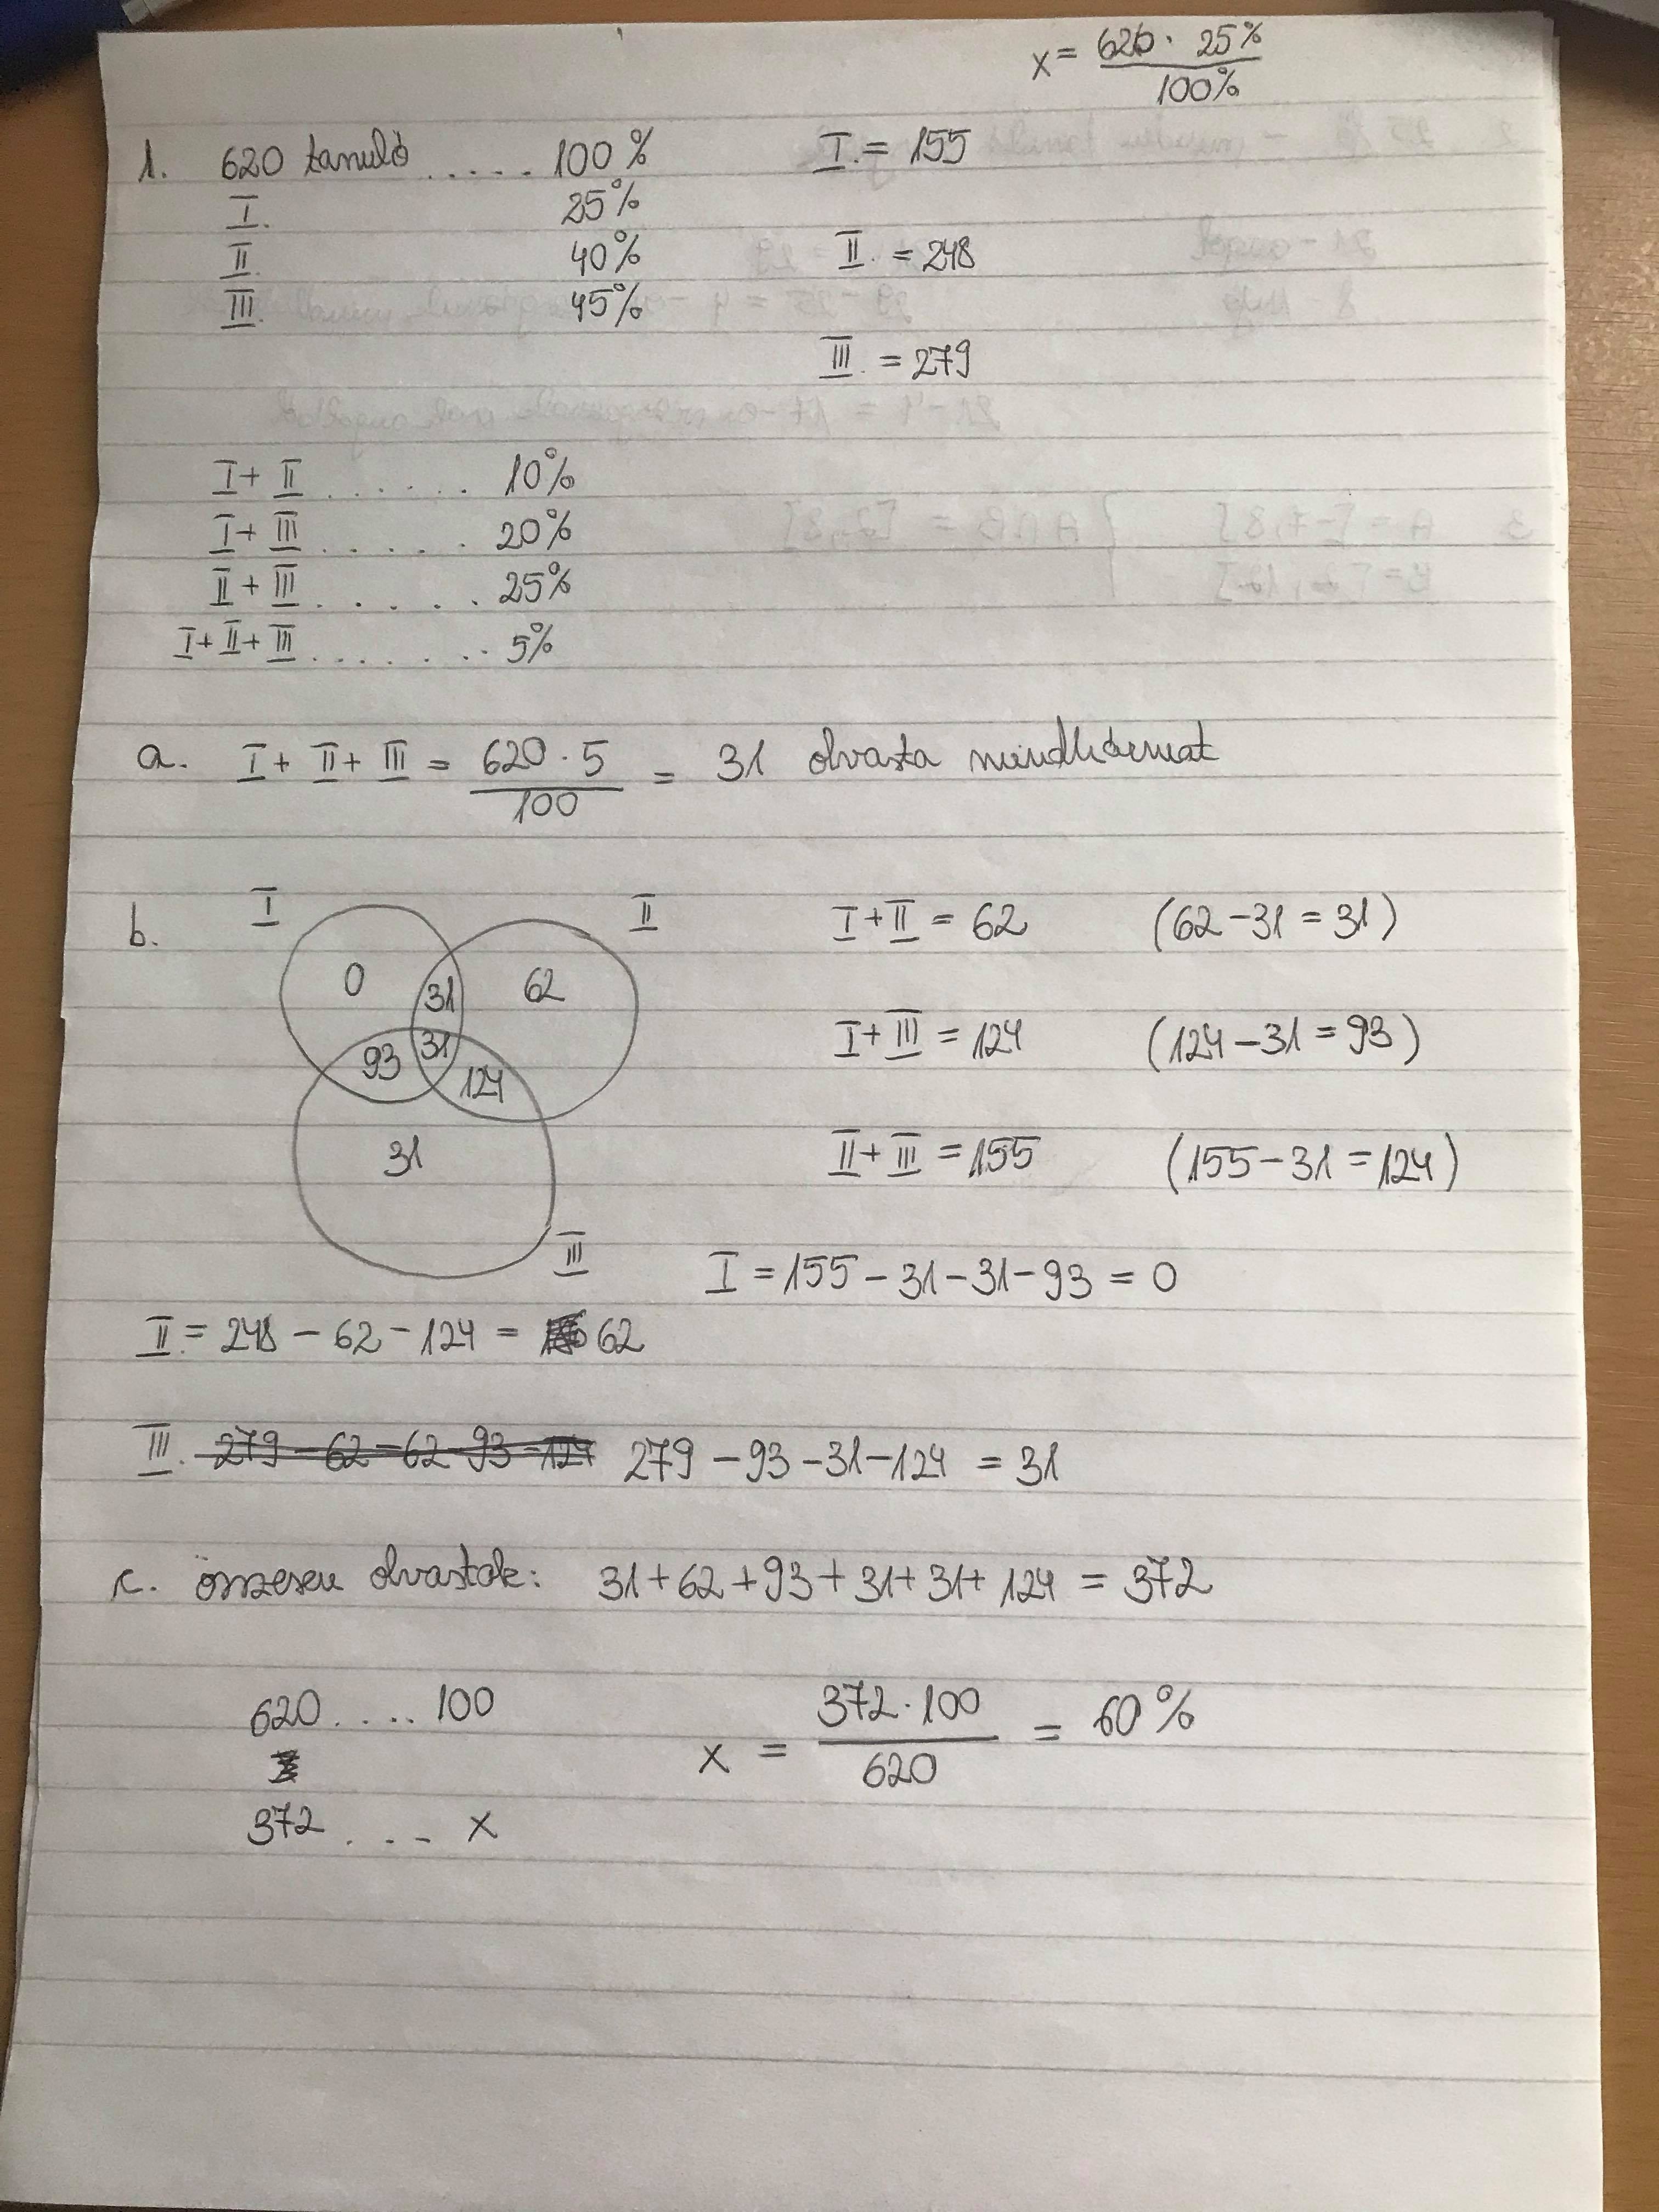 x = 620 · 25% / 100%
1. 620 tanuló ..... 100% I. = 155
I. 25%
II. 40% II. = 248
III. 45%
III. = 279
I + II ...... 10%
I + III ..... 20%
II + III ..... 25%
I + II + III ....... 5%
a. I + II + III = 620 · 5 / 100 = 31 olvasta mindhármat
b. I II I + II = 62 (62 - 31 = 31)
0 31 62
I + III = 124 (124 - 31 = 93)
93 31 124
31 II + III = 155 (155 - 31 = 124)
III I = 155 - 31 - 31 - 93 = 0
II. = 248 - 62 - 124 = 62
III. 279 - 62 - 62 - 93 - 124 279 - 93 - 31 - 124 = 31
c. összesen olvasták: 31 + 62 + 93 + 31 + 31 + 124 = 372
620 .... 100 x = 372 · 100 / 620 = 60%
372 .... x